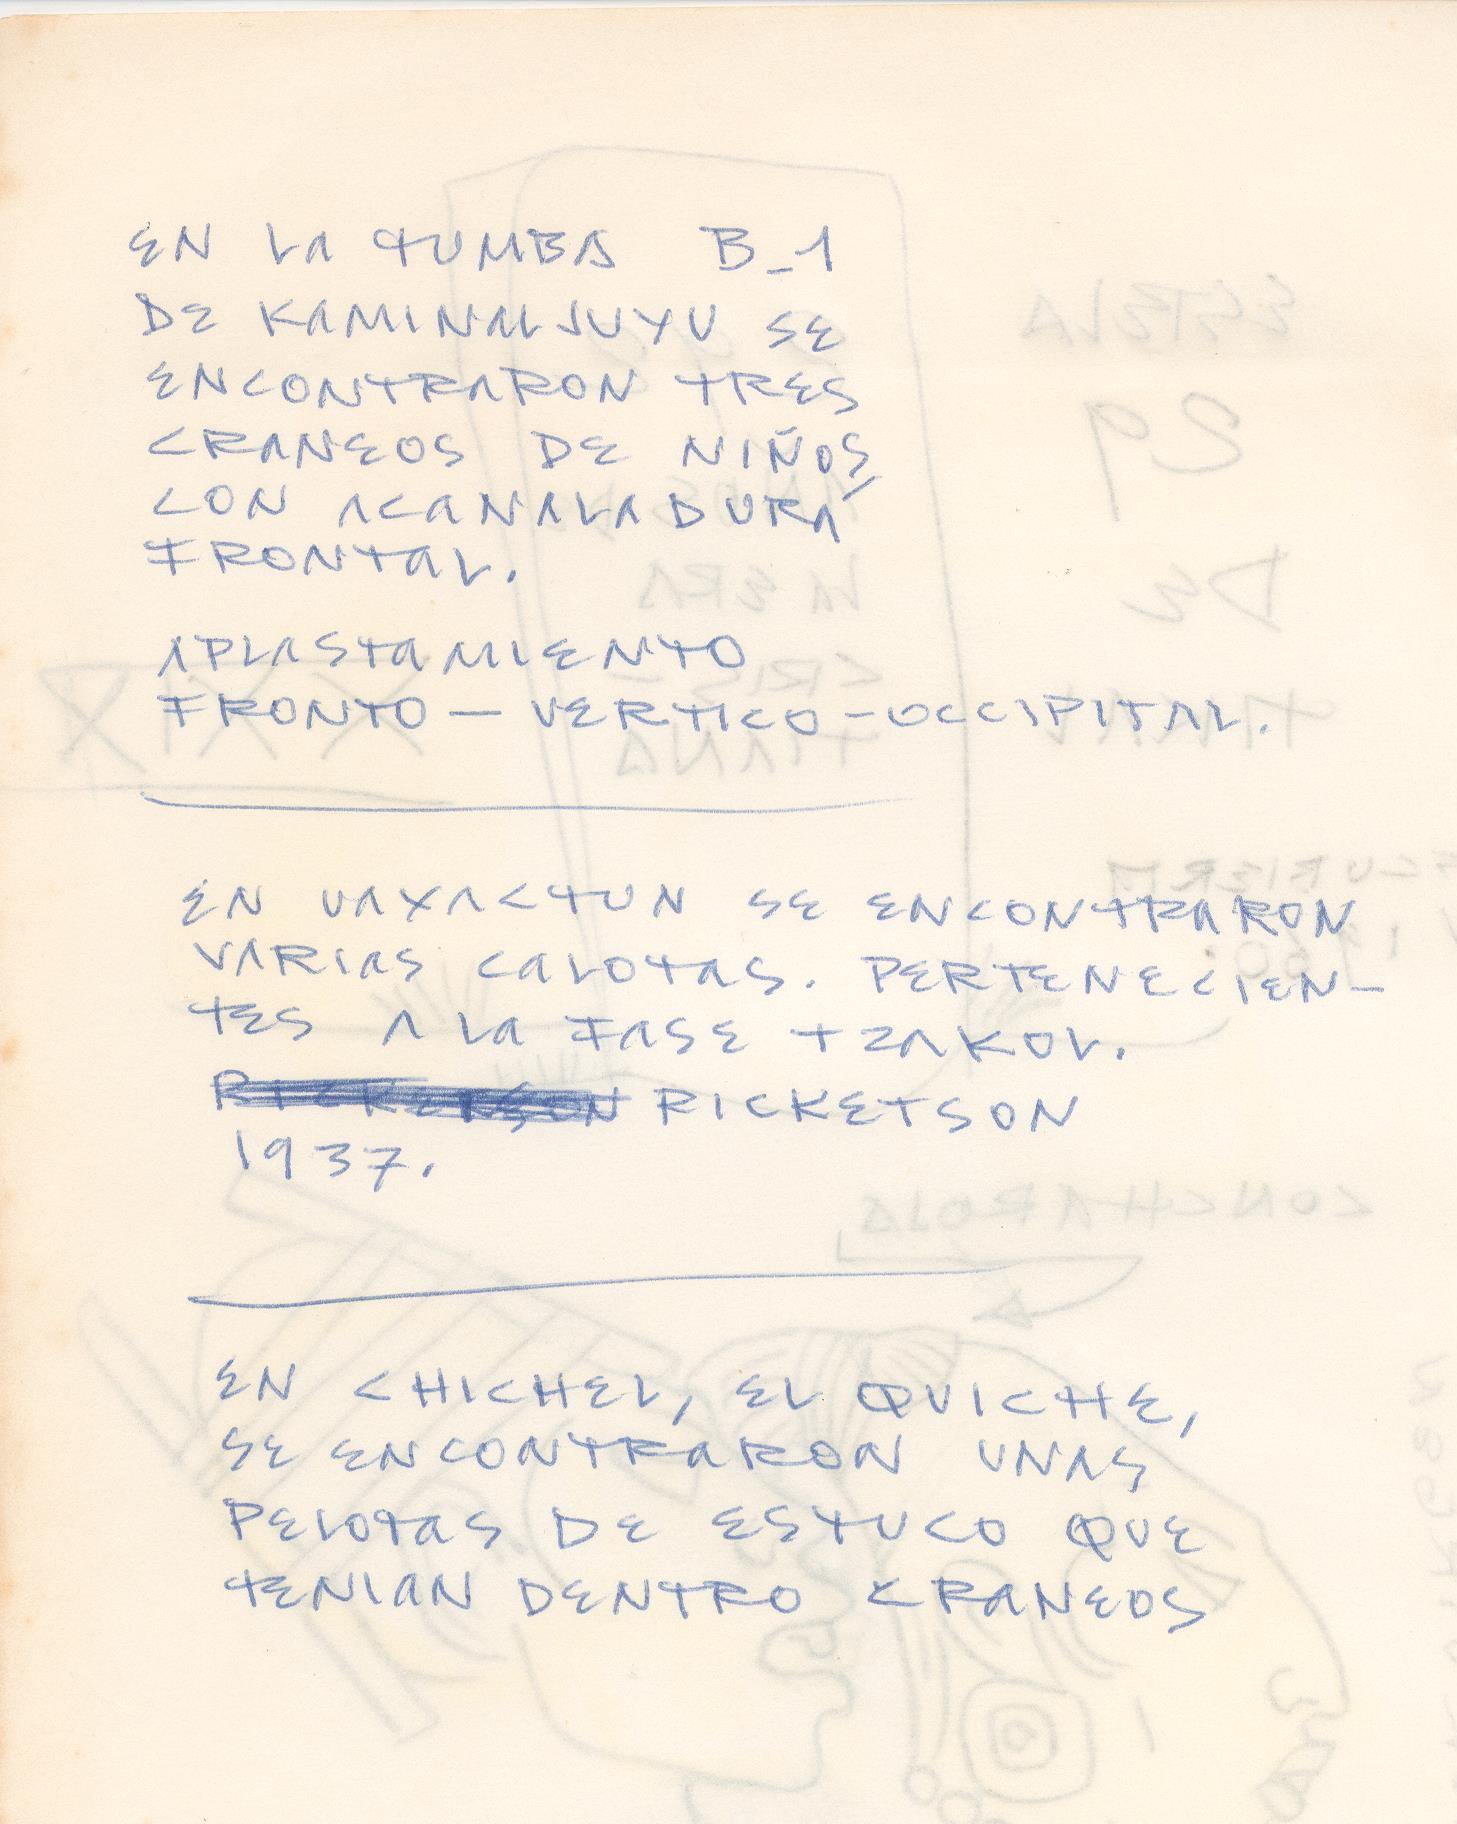 EN LA TUMBA B-1
DE KAMINALJUYU SE
ENCONTRARON TRES
CRANEOS DE NIÑOS
CON ACANALADURA
FRONTAL.
APLASTAMIENTO
FRONTO — VERTICO - OCCIPITAL.
EN UAXACTUN SE ENCONTRARON
VARIAS CALOTAS. PERTENECIEN-
TES A LA FASE TZAKOL.
RICKETSON
1937.
EN CHICHEL, EL QUICHE,
SE ENCONTRARON UNAS
PELOTAS DE ESTUCO QUE
TENIAN DENTRO CRANEOS